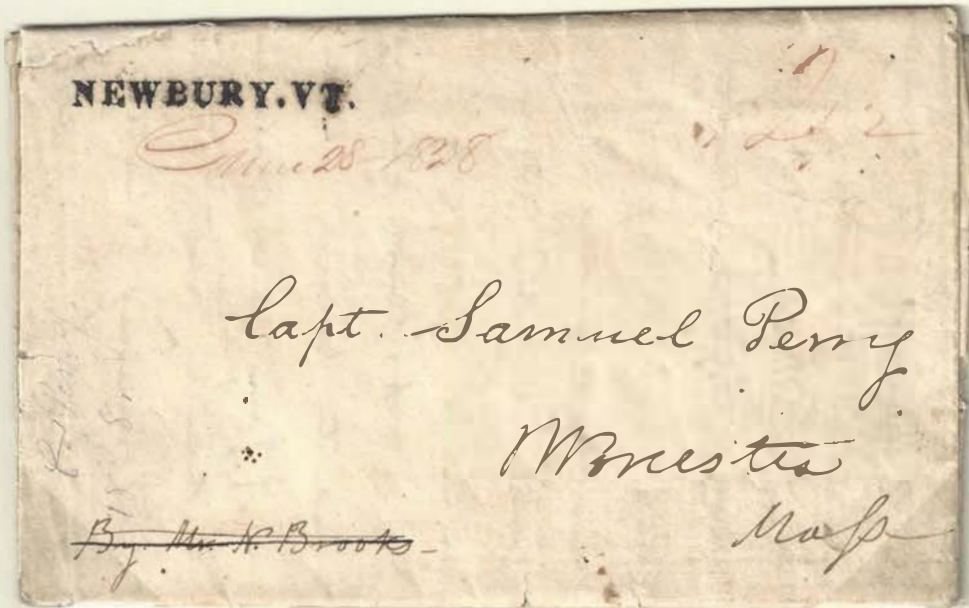 NEWBURY.VT.
June 28 1828
Capt. Samuel Perry
Worcester
Mass
By Mr N. Brooks